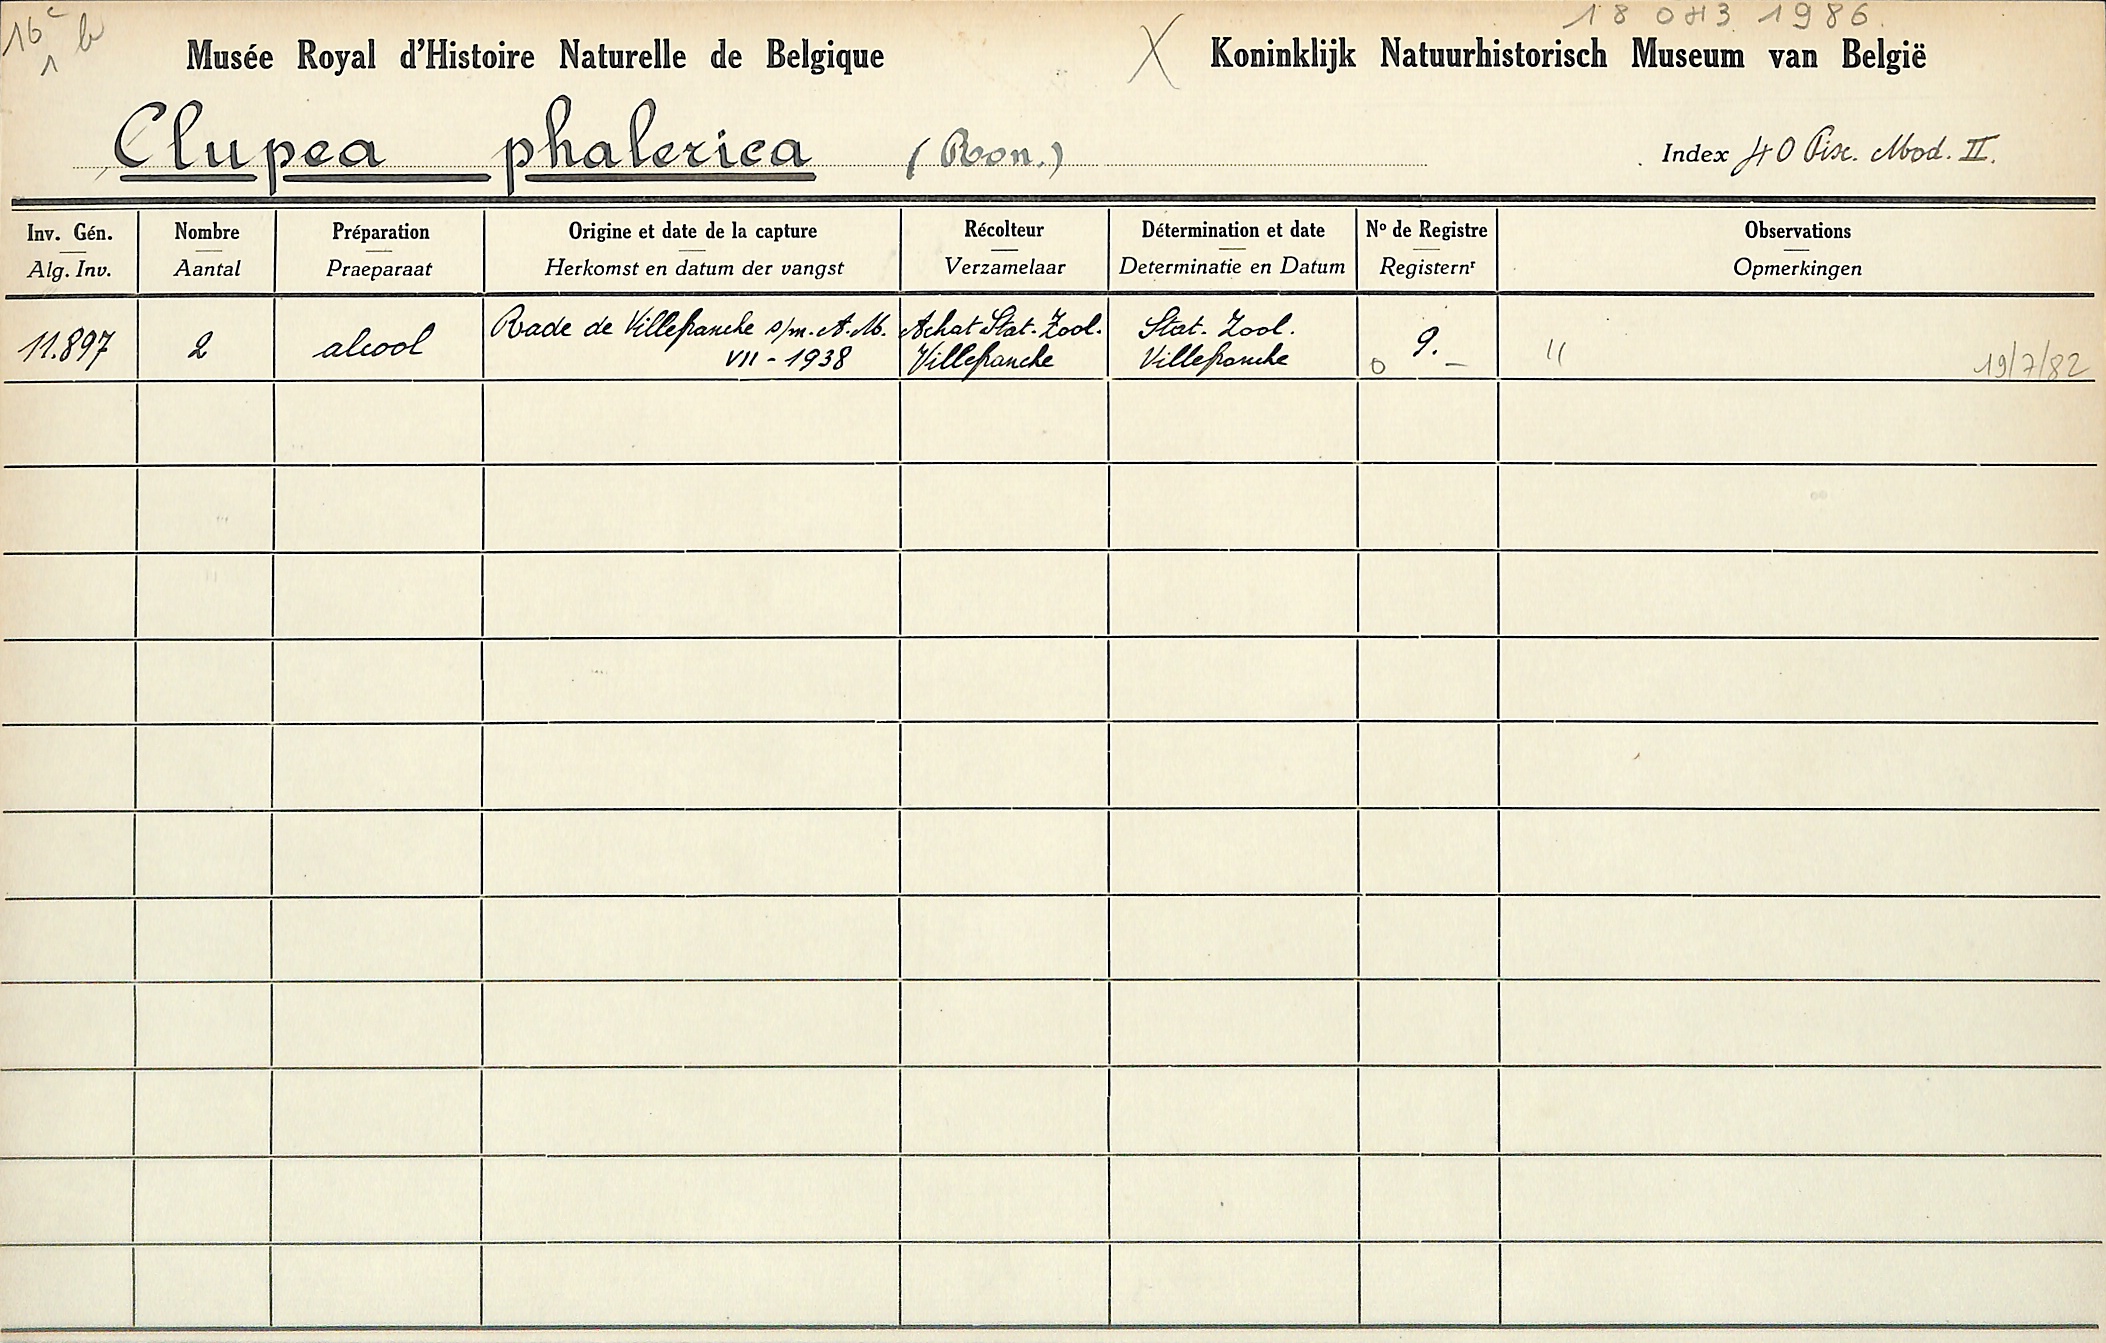 16c b
1
18 043 1986.
Musée Royal d'Histoire Naturelle de Belgique X Koninklijk Natuurhistorisch Museum van België
Clupea phalerica (Ron.) Index 40 Pisc. Mod. II.
Inv. Gén. Nombre Préparation Origine et date de la capture Récolteur Détermination et date No de Registre Observations
Alg. Inv. Aantal Praeparaat Herkomst en datum der vangst Verzamelaar Determinatie en Datum Registernr Opmerkingen
11.897 2 alcool Rade de Villefranche s/m. A.M. Achat Stat. Zool. Stat. Zool. 9.
VII - 1938 Villefranche Villefranche o — " 19/7/82